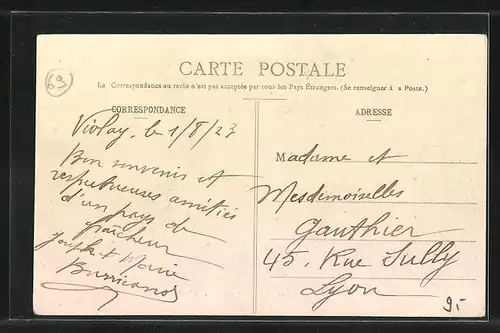 69
CARTE POSTALE
La Correspondance au recto n'est pas acceptée par tous les Pays Étrangers. (Se renseigner à a Poste.)
CORRESPONDANCE
Violay, le 1/8/23
Bon souvenir et
respectueuses amitiés
d'un pays de
fraîcheur
Joseph & Marie
ADRESSE
Madame et
Mesdemoiselles
Gauthier
45, Rue Sully
Lyon
9.-